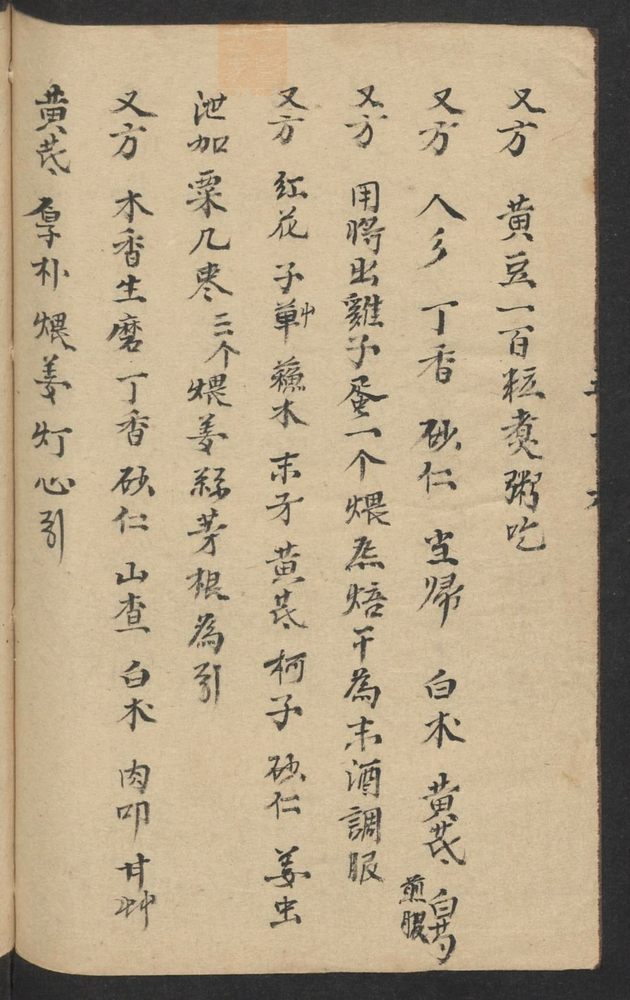 又方 黄豆一百粒煑粥吃
又方 人參 丁香 砂仁 当歸 白术 黄芪 白芍 煎服
又方 用將出雞子蛋一个煨焦焙干為末酒調服
又方 红花 子草 蘓木 末牙 黄芪 柯子 砂仁 姜虫
泄加粟几枣三个煨姜絲芽根為引
又方 木香生磨丁香砂仁山查白术肉叩甘艸
黄芪厚朴煨姜灯心引